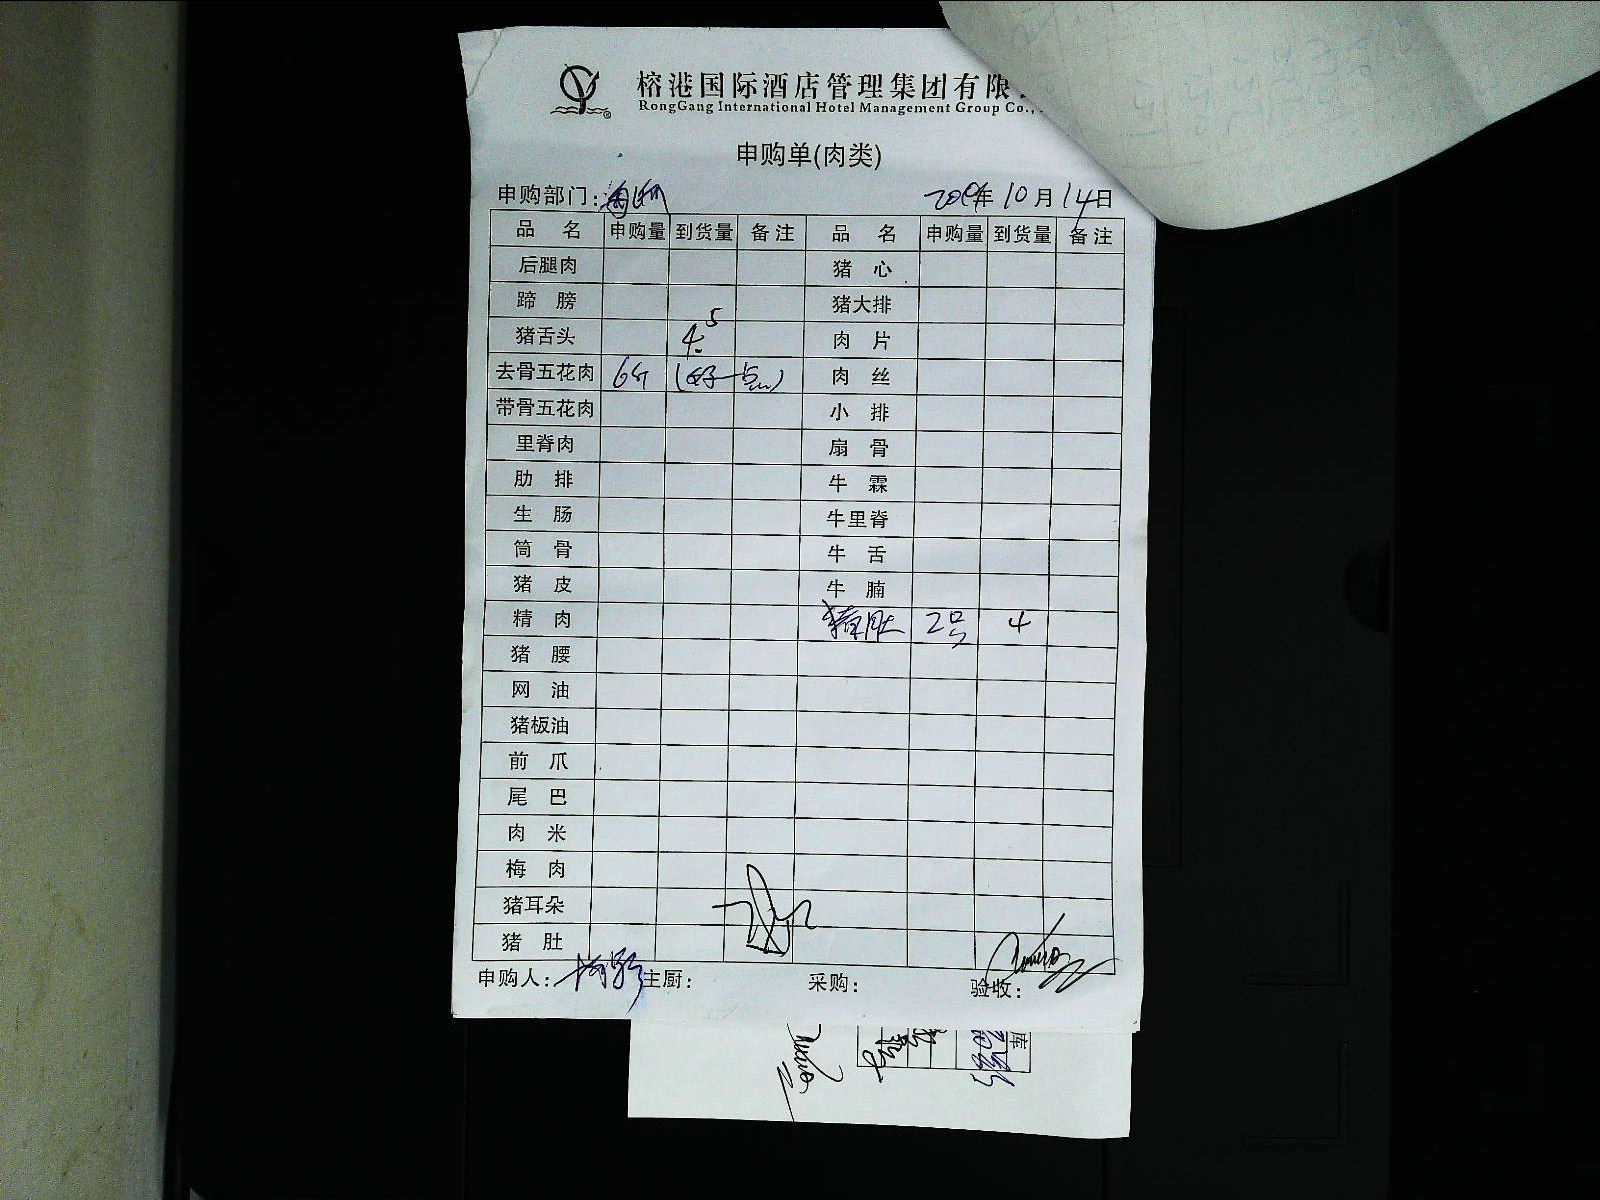 榕港国际酒店管理集团有限
RongGang International Hotel Management Group Co.,
申购单(肉类)
申购部门: 年 10 月 14 日
品 名 申购量 到货量 备注 品 名 申购量 到货量 备注
后腿肉 猪 心
蹄 膀 猪大排
猪舌头 肉 片
4.5
去骨五花肉 6斤 (好一点) 肉 丝
带骨五花肉 小 排
里脊肉 扇 骨
肋 排 牛 霖
生 肠 牛里脊
筒 骨 牛 舌
猪 皮 牛 腩
精 肉 猪肚 2只 4
猪 腰
网 油
猪板油
前 爪
尾 巴
肉 米
梅 肉
猪耳朵
猪 肚
申购人: 主厨: 采购: 验收:
库